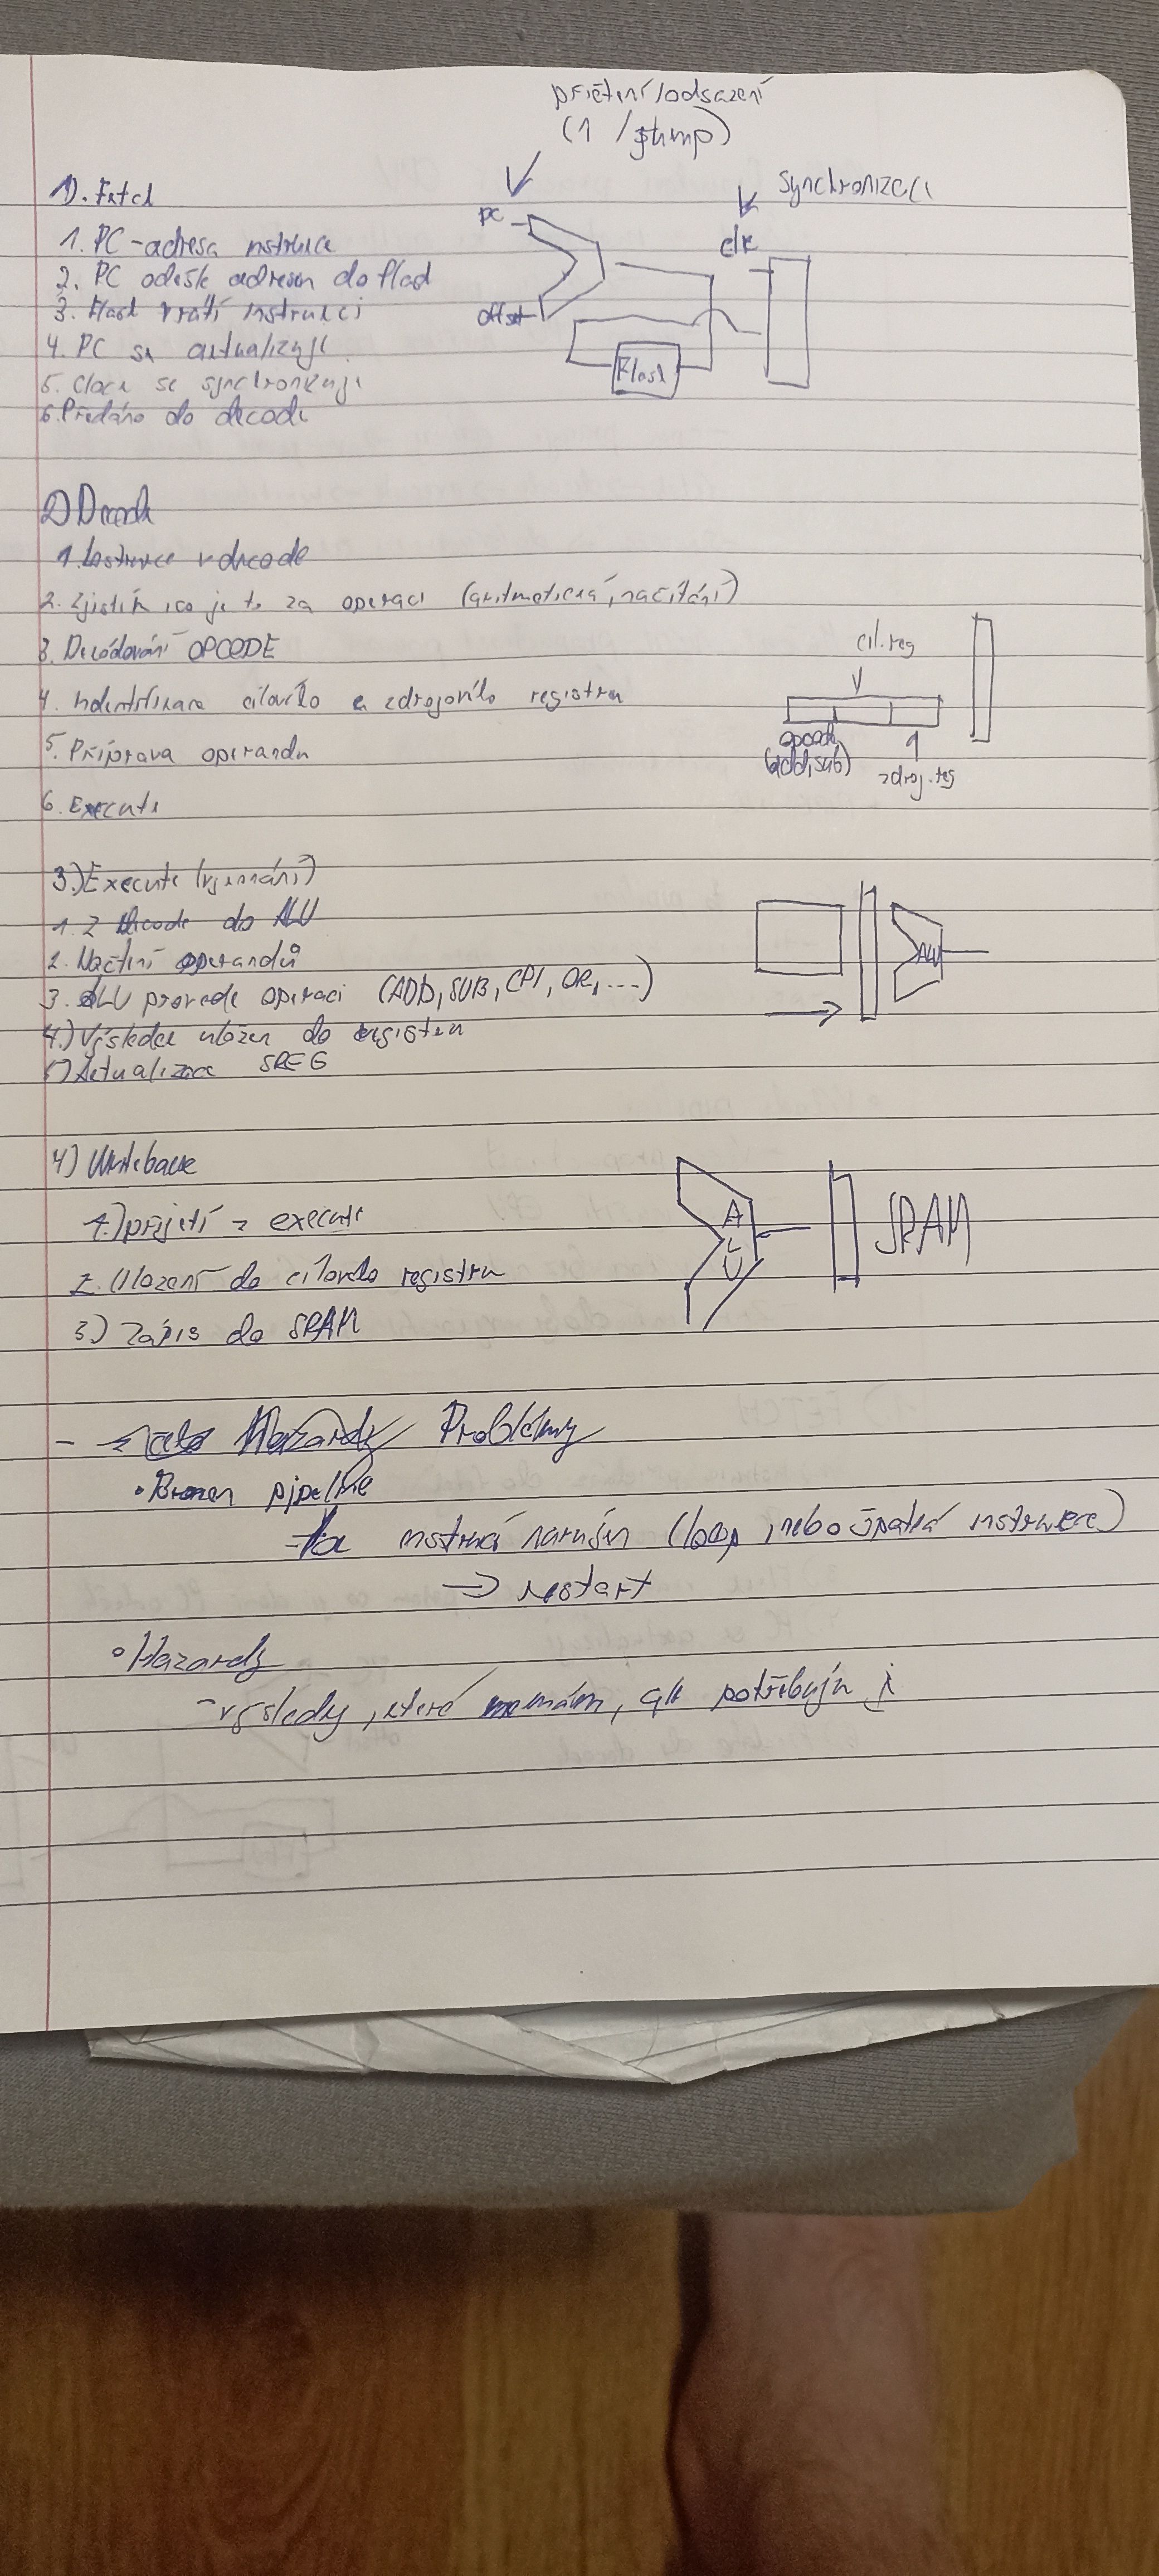 přičtení/odsazení
(1 / jump)
1). Fetch
synchronizaci
PC
clk
1. PC - adresa instrukce
2. PC odešle adresu do flash
3. Flash vrátí instrukci
offset
4. PC se aktualizuje
Flash
5. Clock se synchronizuje
6. Předáno do decode
2) Decode
1. Instrukce v decode
2. Zjistím co je to za operaci (aritmetická, načítání)
3. Decódování OPCODE
cíl. reg
4. Indentifikace cílového a zdrojového registru
5. Příprava operandu
opcode
(add, sub)
zdroj. reg
6. Execute
3.) Execute (vykonání)
1. Z decode do ALU
2. Načtení operandů
ALU
3. ALU provede operaci (ADD, SUB, CPI, OR, ...)
4.) Výsledek uložen do registru
5) Aktualizace SREG
4) Writeback
1.) přijetí z execute
ALU
SRAM
2. Uložení do cílového registru
3) Zápis do SRAM
- Hazardy Problémy
• Broken pipeline
narušen (loop, nebo špatná instrukce)
→ restart
• Hazardy
- výsledky, které nemám, ale potřebuju je